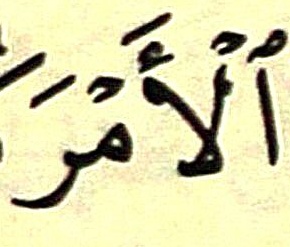 ٱلْأَمْرَ